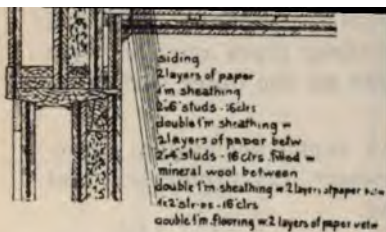 siding
2 layers of paper
1"m sheathing
2x6 studs - 16 clrs
double 1"m sheathing w
2 layers of paper betw
2x4 studs - 16 clrs filled w
mineral wool between
double 1"m sheathing w 2 layers of paper betw
1x2 strips - 16 clrs
double 1"m. flooring w 2 layers of paper betw